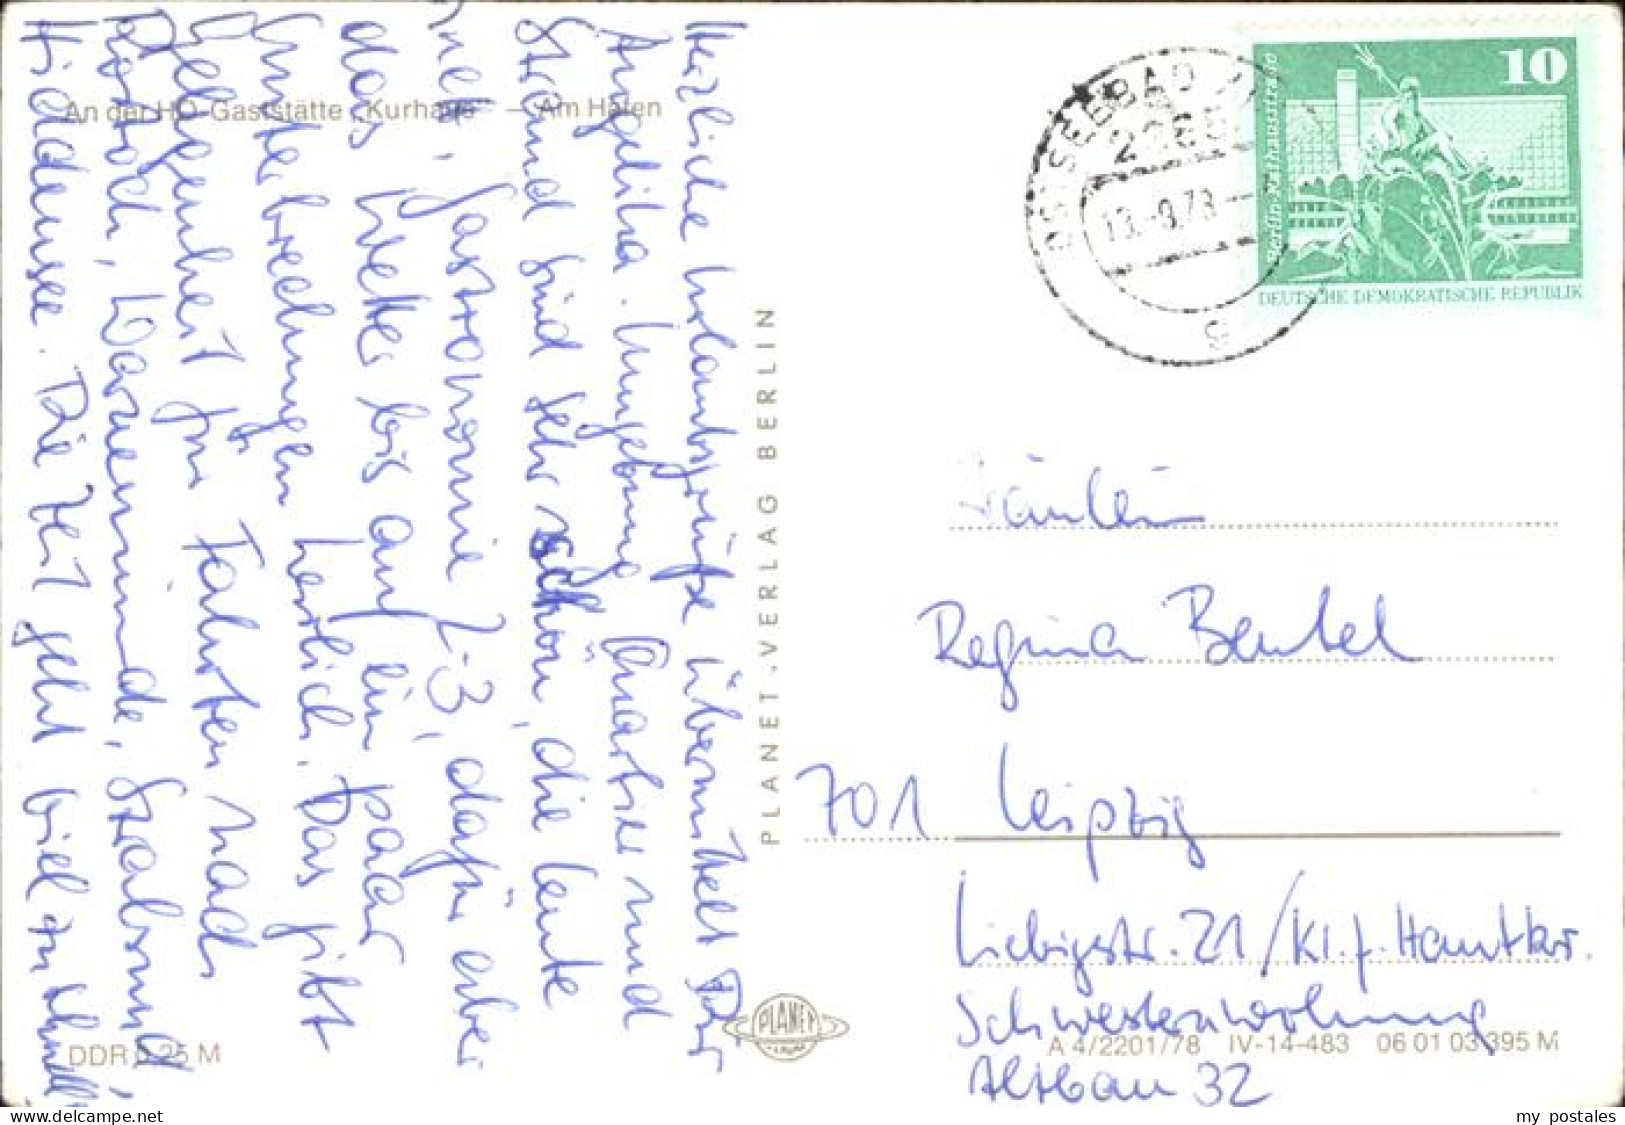 An der HO-Gaststätte „Kurhaus“ — Am Hafen
Herzliche Urlaubsgrüße übermittelt Dir
Angelika. Umgebung, Quartier und
Strand sind sehr schön, die Leute
nett, Gastronomie 2-3, dafür aber
das Wetter bis auf ein paar
Unterbrechungen herrlich. Das gibt
Gelegenheit für Fahrten nach
Rostock, Warnemünde, Stralsund,
Hiddensee. Die Zeit geht viel zu schnell
DDR 0,25 M
PLANET-VERLAG BERLIN
PLANET
OSTSEEBAD
13.-9.78
g
10
Berlin, Rathausstraße
DEUTSCHE DEMOKRATISCHE REPUBLIK
Fräulein
Regina Beutel
701 Leipzig
Liebigstr. 21/Kl. f. Hautkr.
Schwesternwohnung
Altbau 32
A 4/2201/78 IV-14-483 06 01 03 395 M
my postales